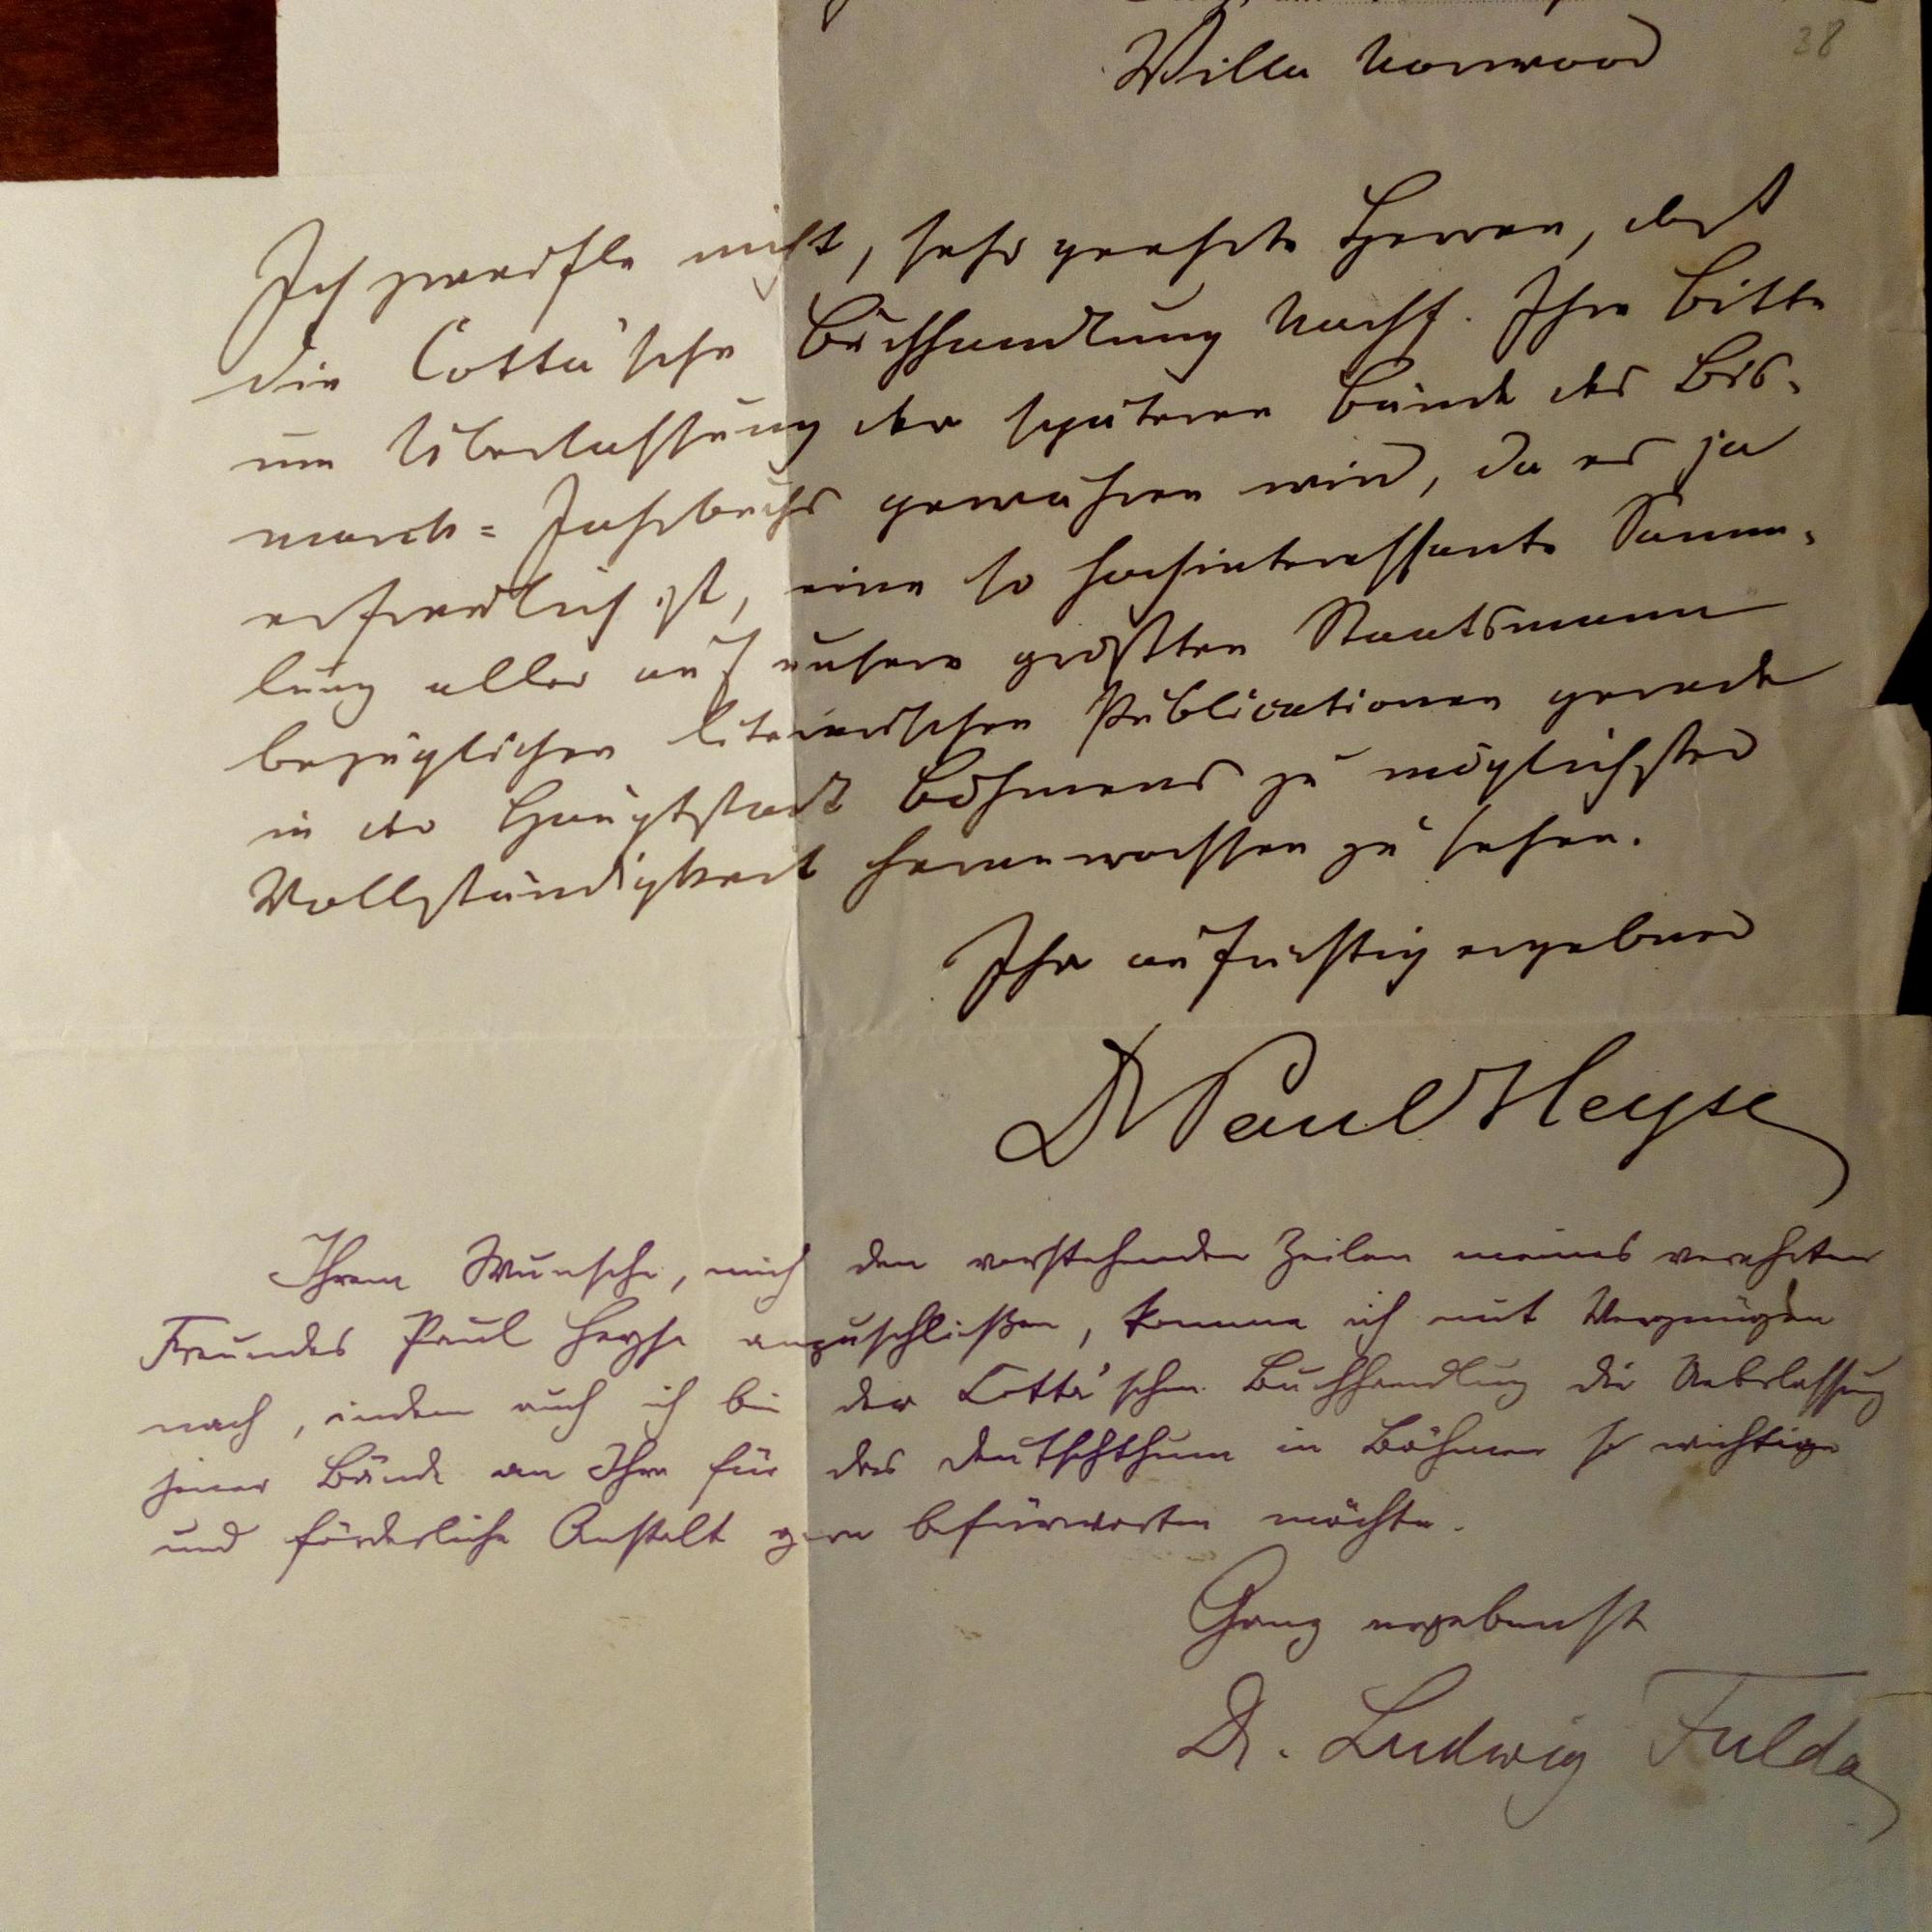 Villa Norwood
38
Ich zweifle nicht, sehr geehrte Herren, daß
die Cotta'sche Buchhandlung Nachf. Ihre Bitte
um Überlassung der späteren Bände des Bis-
marck-Jahrbuchs gewähren wird, da es ja
erfreulich ist, eine so hochinteressante Samm-
lung aller auf unsern größten Staatsmann
bezüglichen literarischen Publicationen gerade
in der Hauptstadt Böhmens zu möglichster
Vollständigkeit heranwachsen zu sehen.
Ihr aufrichtig ergebener
Dr Paul Heyse
Ihrem Wunsche, mich den vorstehenden Zeilen meines verehrten
Freundes Paul Heyse anzuschließen, komme ich mit Vergnügen
nach, indem auch ich bei der Cotta'schen Buchhandlung die Ueberlassung
jener Bände an Ihre für das Deutschthum in Böhmen so wichtige
und förderliche Anstalt gern befürworten möchte.
Ganz ergebenst
Dr. Ludwig Fulda